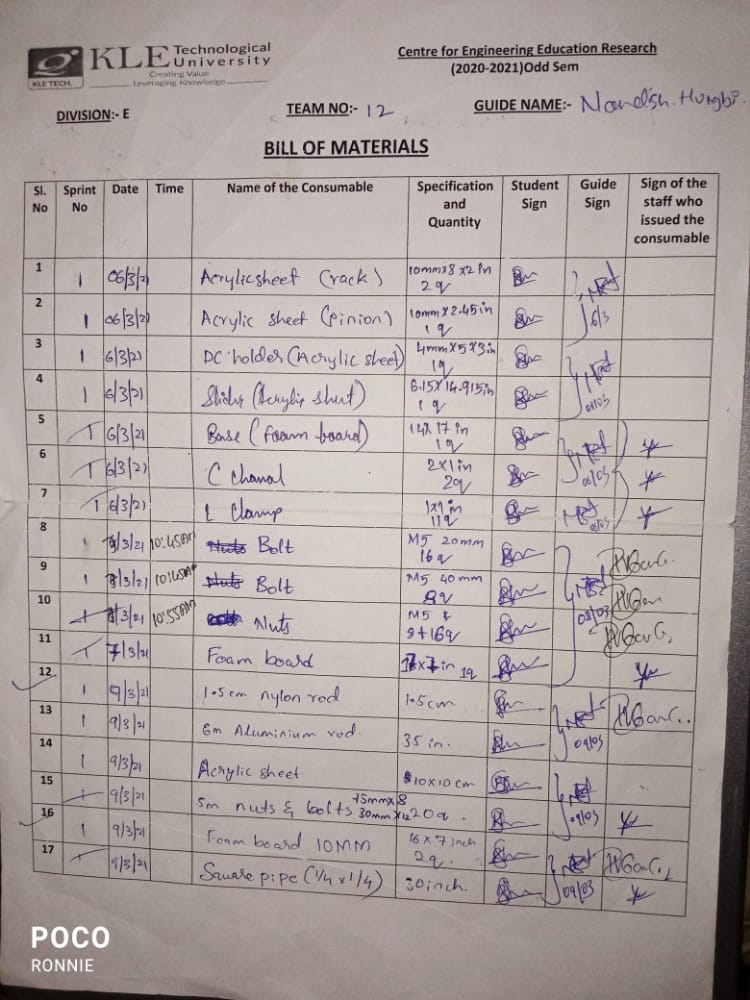 KLE Technological University
Creating Value
Leveraging Knowledge
KLE TECH.
Centre for Engineering Education Research
(2020-2021)Odd Sem
DIVISION:- E TEAM NO:- 12 GUIDE NAME:-
BILL OF MATERIALS
Sl. No Sprint No Date Time Name of the Consumable Specification and Quantity Student Sign Guide Sign Sign of the staff who issued the consumable
1 1 06/3/21 Acrylic sheet (rack) 10mm x 8 x 2 in 2q
2 1 06/3/21 Acrylic sheet (pinion) 10mm x 2.45in 1q 6/3
3 1 6/3/21 DC holder (Acrylic sheet) 4mm x 5 x 3in 1q
4 1 6/3/21 (Acrylic sheet) 6.15 x 14.915in 1q
5 1 6/3/21 Base (foam board) 14 x 17 in 1q
6 1 6/3/21 C Chanal 2x1 in 2q
7 1 6/3/21 L Clamp 1x1 in 11q
8 1 8/3/21 10:45AM Nuts Bolt M5 20mm 16q
9 1 8/3/21 10:45AM Nuts Bolt M5 40mm 8q
10 1 8/3/21 10:55AM Nuts M5 8+16q 08/03
11 1 7/3/21 Foam board in 1q
12 1 9/3/21 1.5cm nylon rod 1.5cm
13 1 9/3/21 6m Aluminium rod 35 in. 09/03
14 1 9/3/21 Acrylic sheet 10x10 cm
15 1 9/3/21 5m nuts & bolts 75mmx8 30mmx12 20q. 09/03
16 1 9/3/21 Foam board 10MM 16 x 7 inch 2q.
17 1 9/3/21 Square pipe (1/4 x 1/4) 30inch. 09/03
POCO
RONNIE